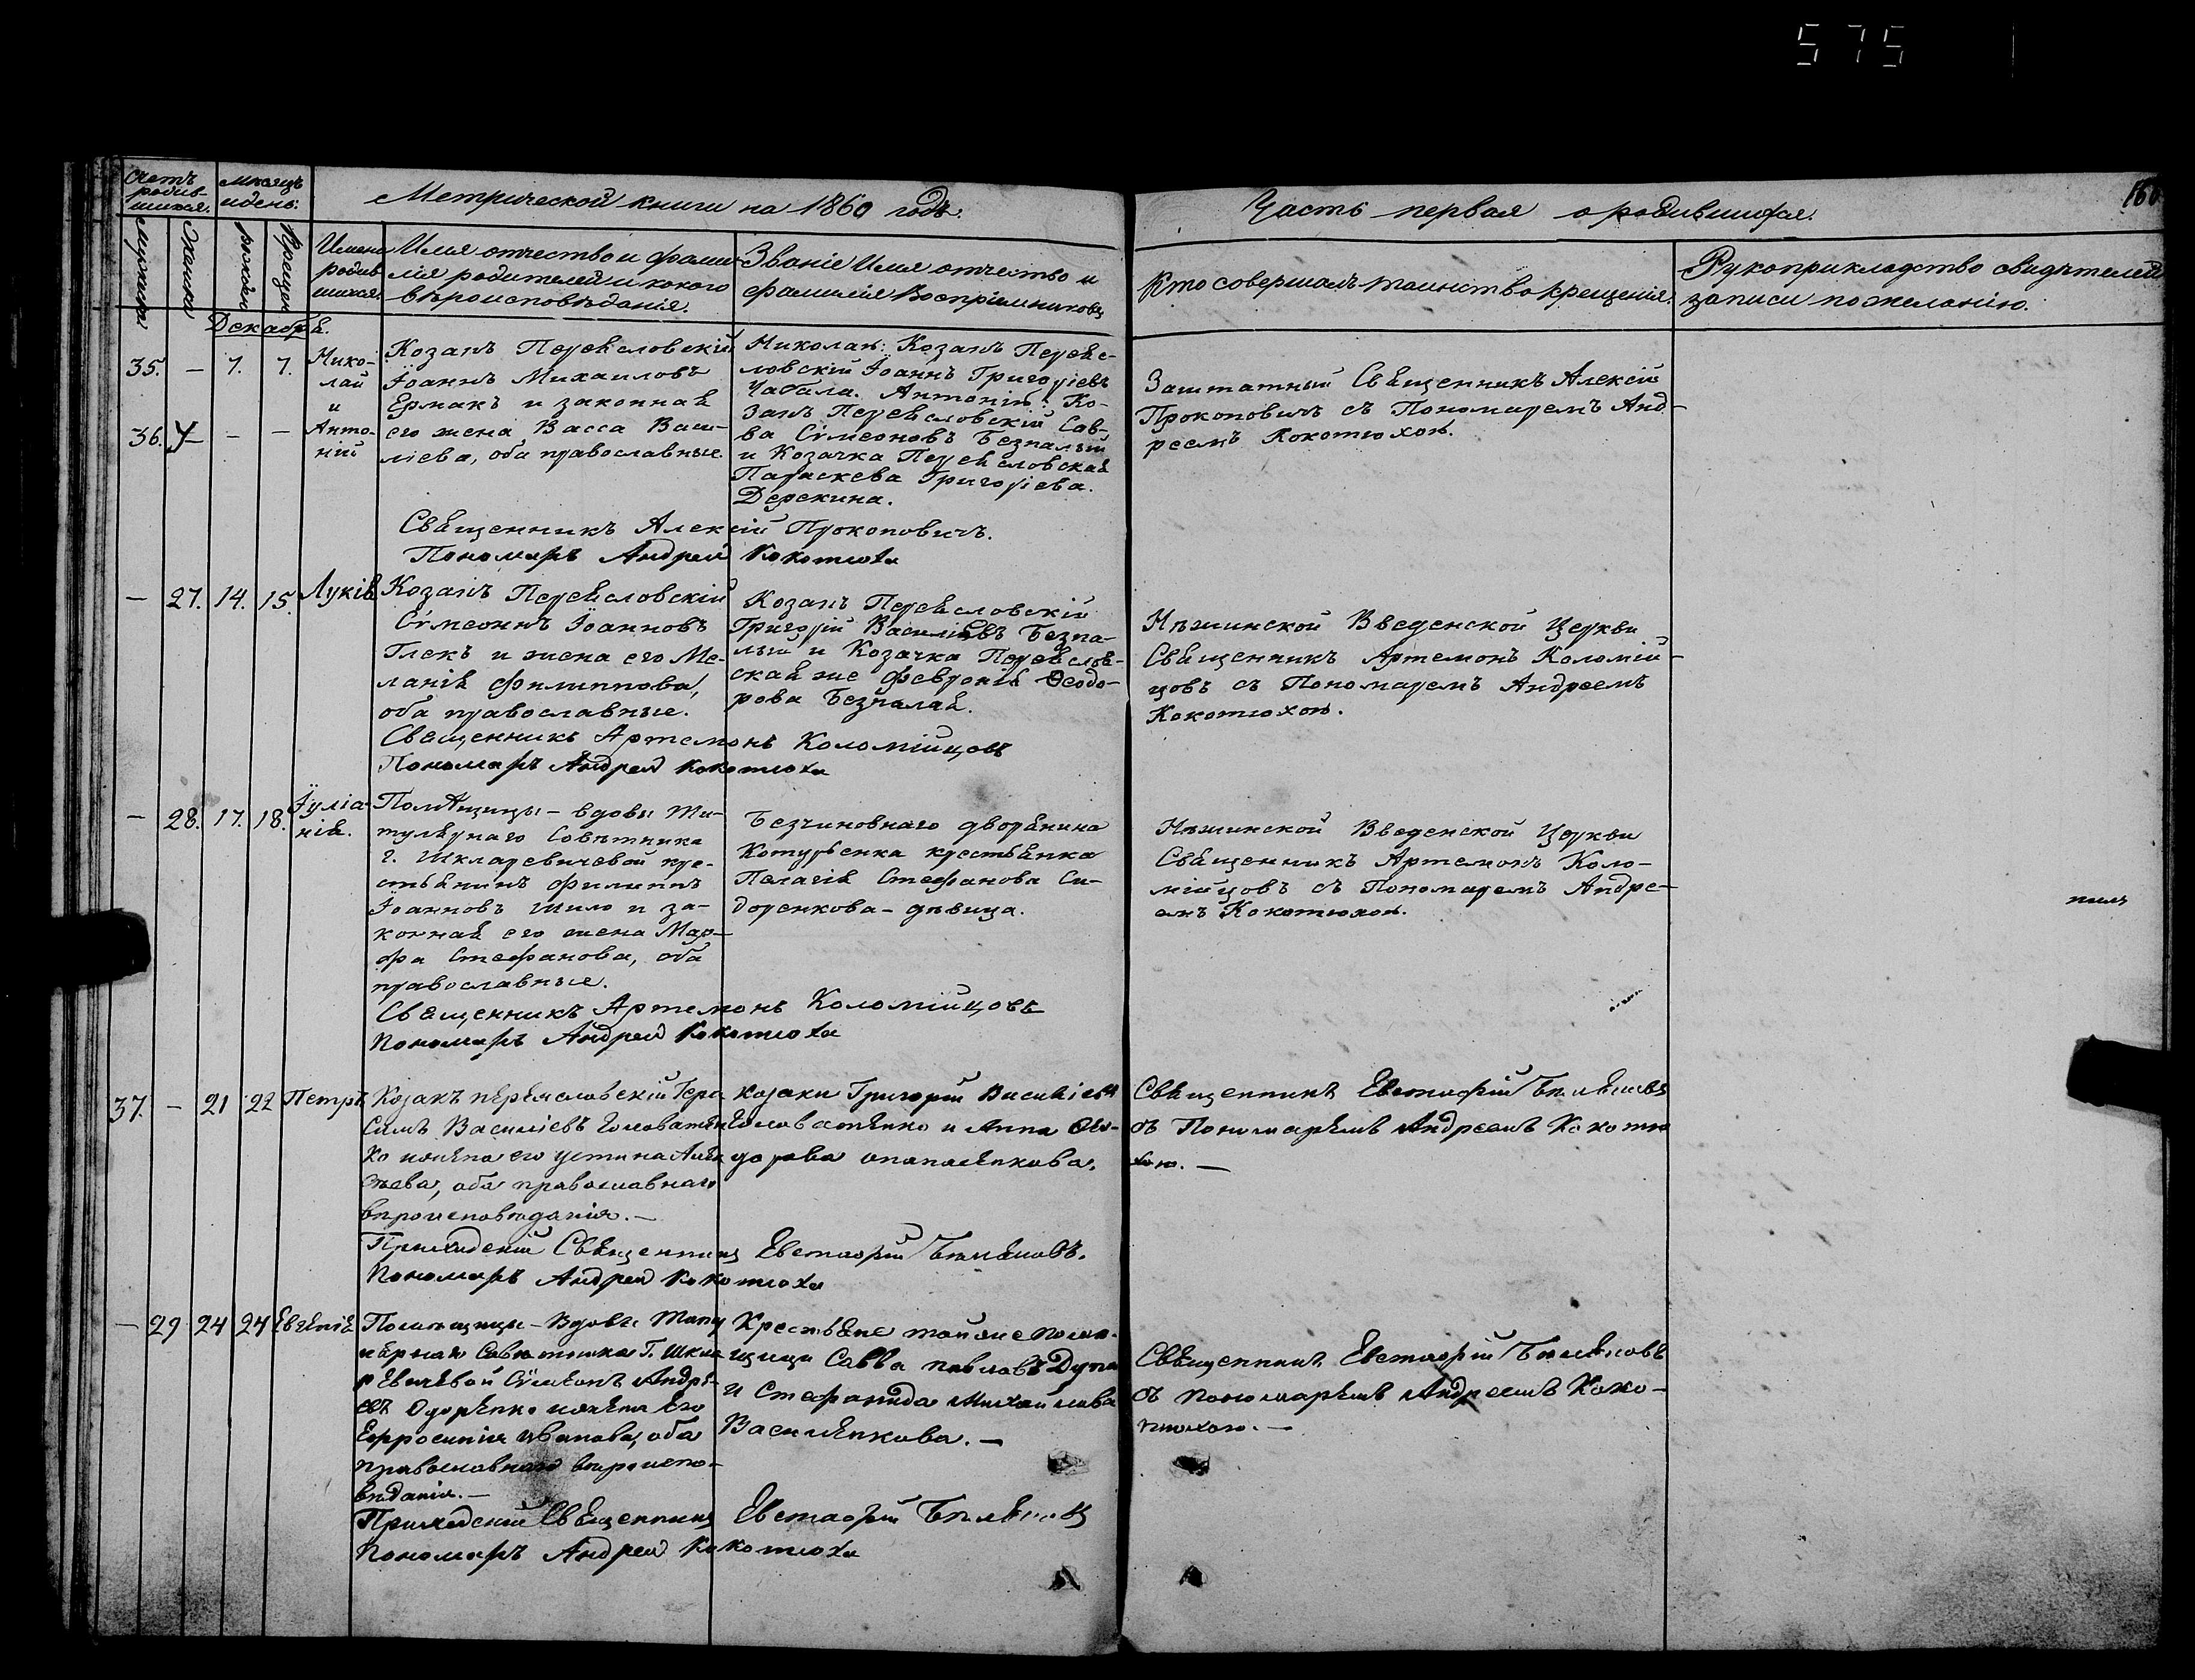 575
160
Счетъ родив-
шихся.
Мѣсяцъ
и день.
Метрической книги на 1860 годъ.
Часть первая о родившихся.
Мужеска
Женска
рожденія
Крещен
Имена
родив
шихся.
Имя отчество и фами-
лія родителей и какого
вѣроисповѣданія.
Званіе Имя отчество и
фамилія Воспріемниковъ
Кто совершалъ таинство крещенія.
Рукоприкладство свидѣтелей
записи по желанію.
Декабря.
35. — 7. 7.
36. — — —
Нико-
лай
и
Анто-
ній
Козакъ Переясловскій
Іоаннъ Михаиловъ
Ермакъ и законная
его жена Васса Васи-
ліева, оба православные.
Николая: Козакъ Переяс-
ловскій Іоаннъ Григоріевъ
Чабала. Антонія: Ко-
закъ Переясловскій Сав-
ва Сѵмеоновъ Безпалый
и Козачка Переясловская
Параскева Григоріева
Дерекина.
Заштатный Священникъ Алексій
Прокоповичъ съ Пономаремъ Анд-
реемъ Кокотюхою.
Священникъ Алексій Прокоповичъ.
Пономарь Андрей Кокотюха
— 27. 14. 15. Лукія
Козакъ Переясловскій
Сѵмеонъ Іоанновъ
Глекъ и жена его Ме-
ланія Филиппова,
оба православные.
Козакъ Переясловскій
Григорій Василіевъ Безпа-
лый и Козачка Переяслов-
ская же Февронія Ѳеодо-
рова Безпалая.
Нѣжинской Введенской Церкви
Священникъ Артемонъ Коломій-
цовъ съ Пономаремъ Андреемъ
Кокотюхою.
Священникъ Артемонъ Коломійцовъ
Пономарь Андрей Кокотюха
— 28. 17. 18. Іуліа-
нія.
Помѣщицы – вдовы Ти-
тулярнаго Совѣтника
г. Шкларевичевой кре-
стьянинъ Филиппъ
Іоанновъ Шило и за-
конная его жена Мар-
фа Стефанова, оба
православные.
Безчиновнаго дворянина
Котурьенка крестьянка
Пелагія Стефанова Си-
доренкова – дѣвица.
Нѣжинской Введенской Церкви
Священникъ Артемонъ Коло-
мійцовъ съ Пономаремъ Андре-
емъ Кокотюхою.
Священникъ Артемонъ Коломійцовъ
Пономарь Андрей Кокотюха
37. — 21 22 Петръ
Козакъ переясловскій Гера
симъ Василіевъ Головатен
ко и жена его Устина Алек
сѣева, оба православнаго
вѣроисповѣданія. —
козаки Григорій Василіевъ
Головатенко и Анна Ѳео-
дорова Опанасенкова.
Священникъ Евстафій
съ Пономаремъ Андреемъ Кокотю
хою. —
Приходскій Священникъ Евстафій
Пономарь Андрей Кокотюха
— 29 24 24 Евгенія
Помѣщицы – Вдовы Титу
лярнаго Совѣтника Г. Шкла
ревичевой Сѵмеонъ Андре-
евъ и жена его
Евфросинія Иванова, оба
православнаго вѣроиспо-
вѣданія. —
Крестьяне той же помѣ-
щицы Савва Павловъ
и Стефанида Михайлова
Василенкова. —
Священникъ Евстафій
съ пономаремъ Андреемъ Коко-
тюхою. —
Приходскій Священникъ Евстафій
Пономарь Андрей Кокотюха